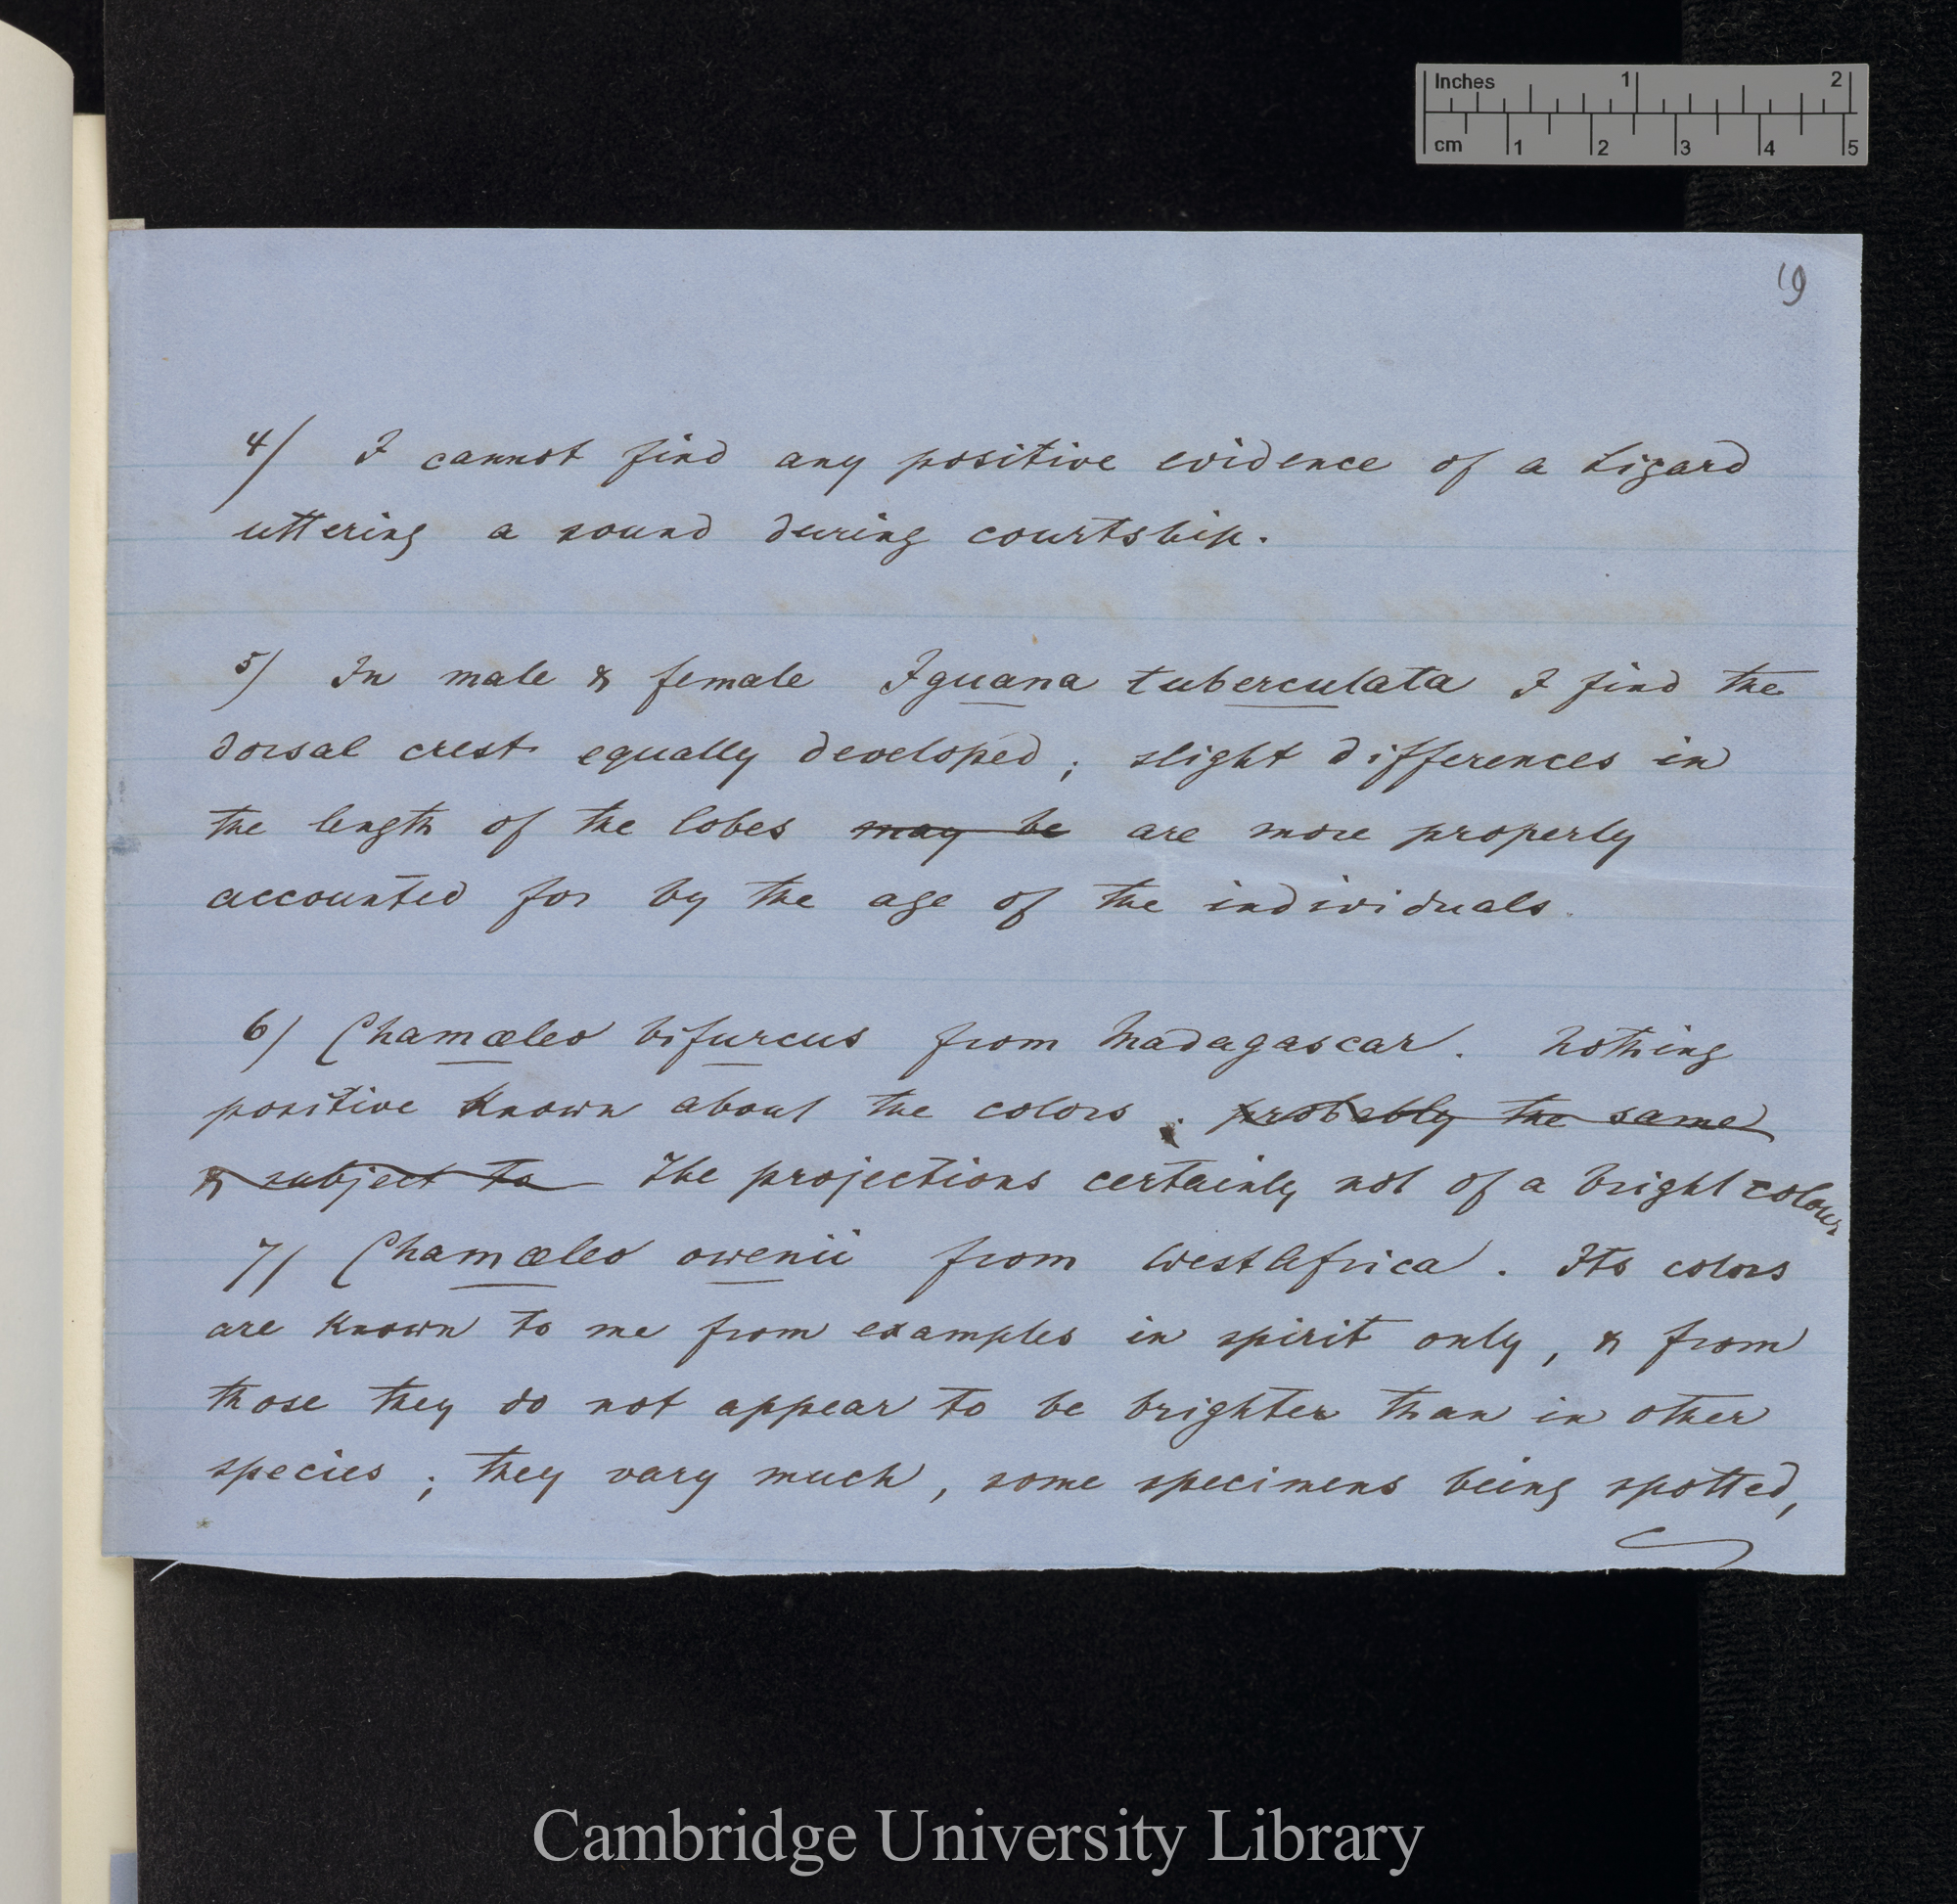 Inches 1 2
cm 1 2 3 4 5
4/ I cannot find any positive evidence of a Lizard
uttering a sound during courtship.
5/ In male & female Iguana tuberculata I find the
dorsal crest equally developed; slight differences in
the length of the lobes may be are more properly
accounted for by the age of the individuals.
6/ Chamæleo bifurcus from Madagascar. Nothing
positive known about the colors. probably the same
& subject to The projections certainly not of a bright colour
7/ Chamæleo owenii from West Africa. Its colors
are known to me from examples in spirit only, & from
those they do not appear to be brighter than in other
species; they vary much, some specimens being spotted,
Cambridge University Library